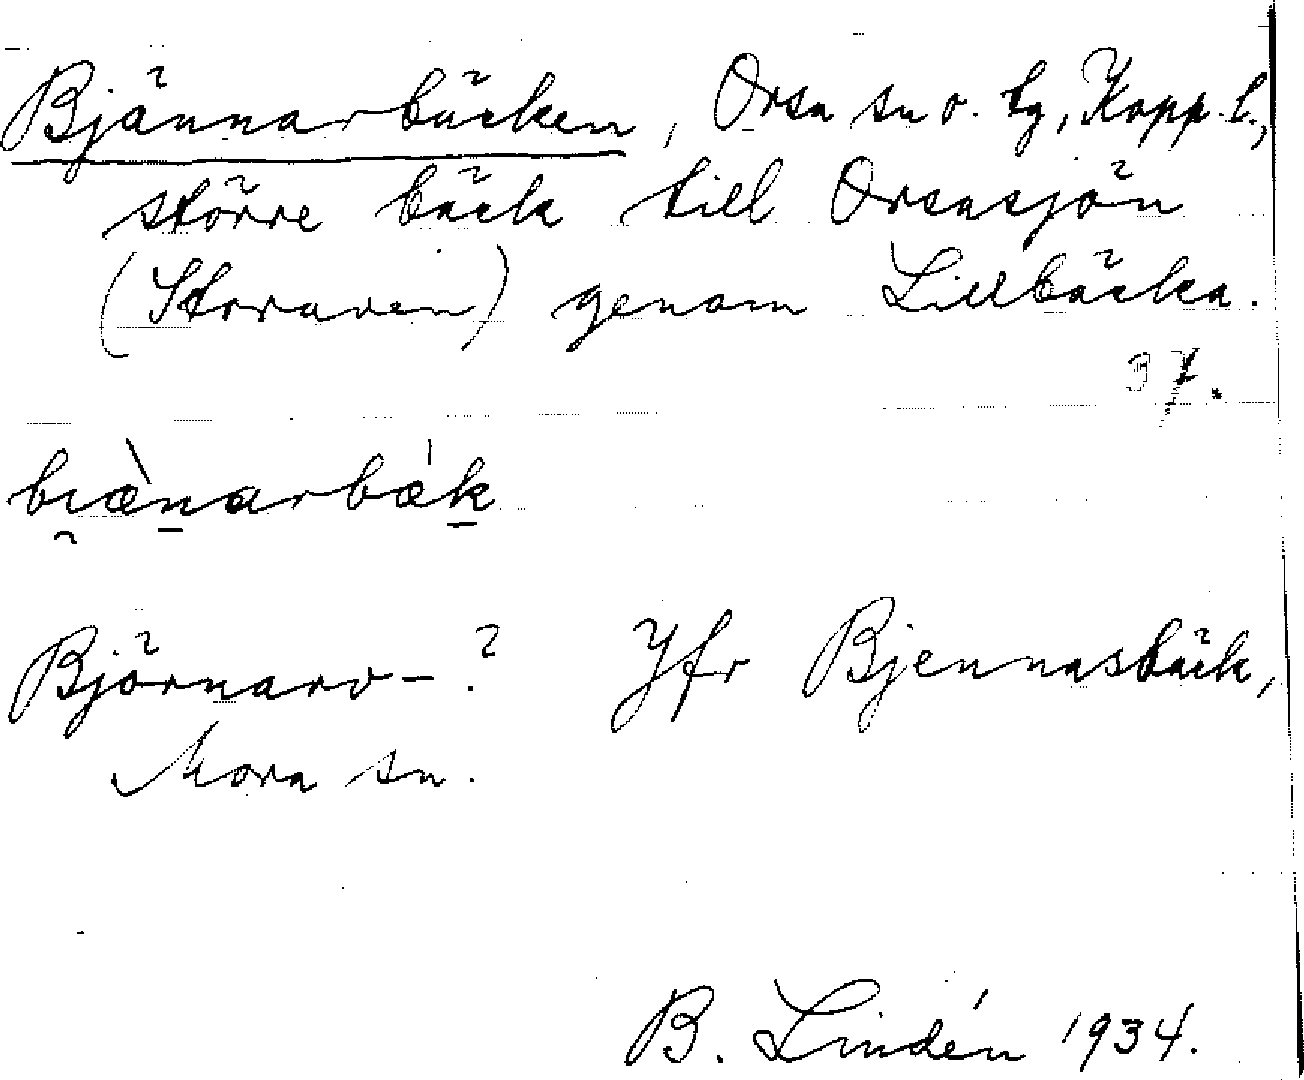 Bjännarbäcken, Orsa sn o. tg, Kopp. l.,
större bäck till Orsasjön
(Storaven) genom Lillbäcka.
37.
bi̯ænarbæk
Björnarv-? Jfr Bjennasbäck,
Mora sn.
B. Lindén 1934.